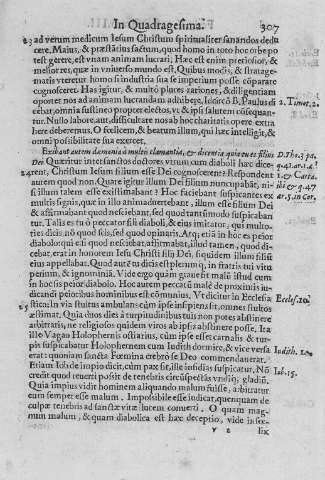 In Quadragesima.
307
23 ad verum medicum Iesum Christum spiritualiter sanandos dedu
cere. Maius, & præstatius factum, quod homo in toto hoc orbe po
test gerere, est vnam animam lucrari. Hæc est enim preciosior, &
melior res, quæ in vniuerso mundo est. Quibus modis, & stratage-
matis vteretur homo si industria sua se imperium posse cōparare
cognosceret. Has igitur, & multo plures rationes, & diligentiam
oportet nos ad animam lucrandam adhibere, Idcirco B. Paulus di
cebat, omnia sustineo propter electos, vt & ipsi salutem cōsequan-
tur. Nullo labore, aut difficultate nos ab hoc charitatis opere extra
here deberemus. O fœlicem, & beatum illum, qui hæc intelligit, &
omni possibilitate sua exercet.
2. Timot. 2.
Exibant autem dæmonia à multis clamantia, & dicentia quia tu es filius
Dei Quæritur inter sanctos doctores vtrum cum diaboli hæc dice-
24 rent, Christum Iesum filium Dei esse cognoscerent? Respondent
autem quod non. Quare igitur illum Dei filium nuncupabāt, ni-
si illum talem esse existimabant? Hoc faciebant suspicantes ex
multis signis, quæ in illo animaduertebant, illum esse filium Dei
& affirmabant quod nesciebant, sed quod tantūmodo suspicaban
tur. Talis es tu ô peccator fili diaboli, & eius imitator, qui multo-
ries dicis nō quod scis, sed quod opinaris. Atq; etiā in hoc es peior
diabolo: qui etsi quod nesciebat affirmabāt, illud tamen, quod di-
cebat, erat in honorem Iesu Christi filij Dei, siquidem illum filiū
eius appellabat. Quod aūt tu dicis est plerumq; in fratris tui vitu
perium, & ignominiā. Vide ergo quām graue sit malū istud cum
in hoc sis peior diabolo. Hoc autem peccatū malè de proximis iu-
dicandi peioribus hominibus est cōmunius, Vt dicitur in Ecclesia
25 stico: in via stultus ambulans cùm ipse insipiens sit, omnes stultos
æstimat. Quia duos dies à turpitudinibus tuis non potes abstinere
arbitraris, ne religiosos quidem viros ab ipsis abstinere posse. Ita
ille Vagao Holophernis ostiarius, cùm ipse esset carnalis & tur-
pis suspicabatur Holophernem cum Iudith dormire, & vice versa
erat: quoniam sancta Fœmina crebrò se Deo commendauerat.
Etiam Iob de impio dicit, cùm pax sit, ille insidias suspicatur, Nō
credit quod reuerti possit de tenebris circūspectās vndiq; gladiū.
Quia impius vidit hominem aliquando malum fuisse, arbitratur
eum semper esse malum. Impossibile esse indicat, quenquam de
culpæ tenebris ad sanctæ vitæ lucem conuerti. O quam mag-
num malum, & quam diabolica est hæc deceptio, vide infœ-
Eccles. 10.
Iudith. 12.
Iob. 15.
V 2
lix